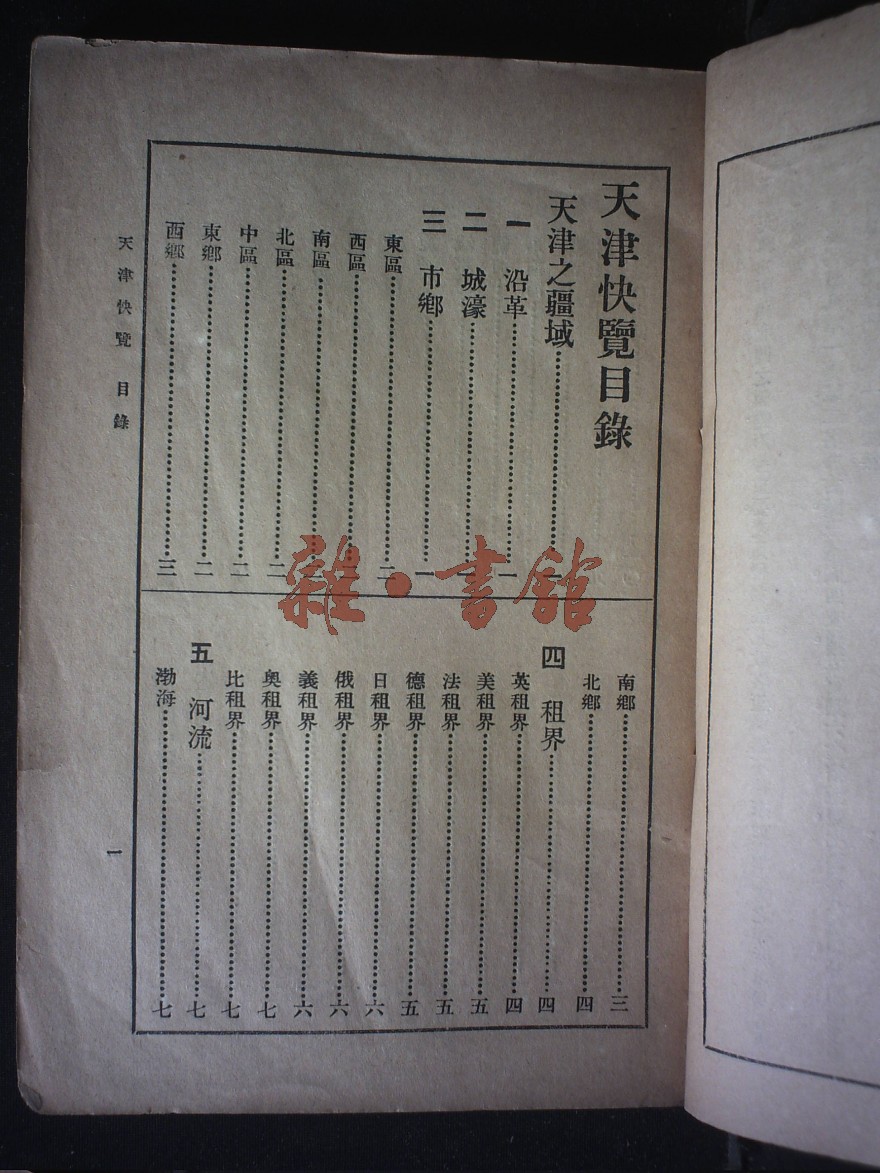 天津快覽目錄
天津之疆域………一
一 沿革………一
二 城濠………
三 市鄉………一
東區………二
西區………
南區………
北區………二
中區………二
東鄉………二
西鄉………三
南鄉………三
北鄉………四
四 租界………四
英租界………四
美租界………五
法租界………五
德租界………五
日租界………六
俄租界………六
義租界………六
奧租界………七
比租界………七
五 河流………七
渤海………七
天津快覽 目錄
一
雜·書館